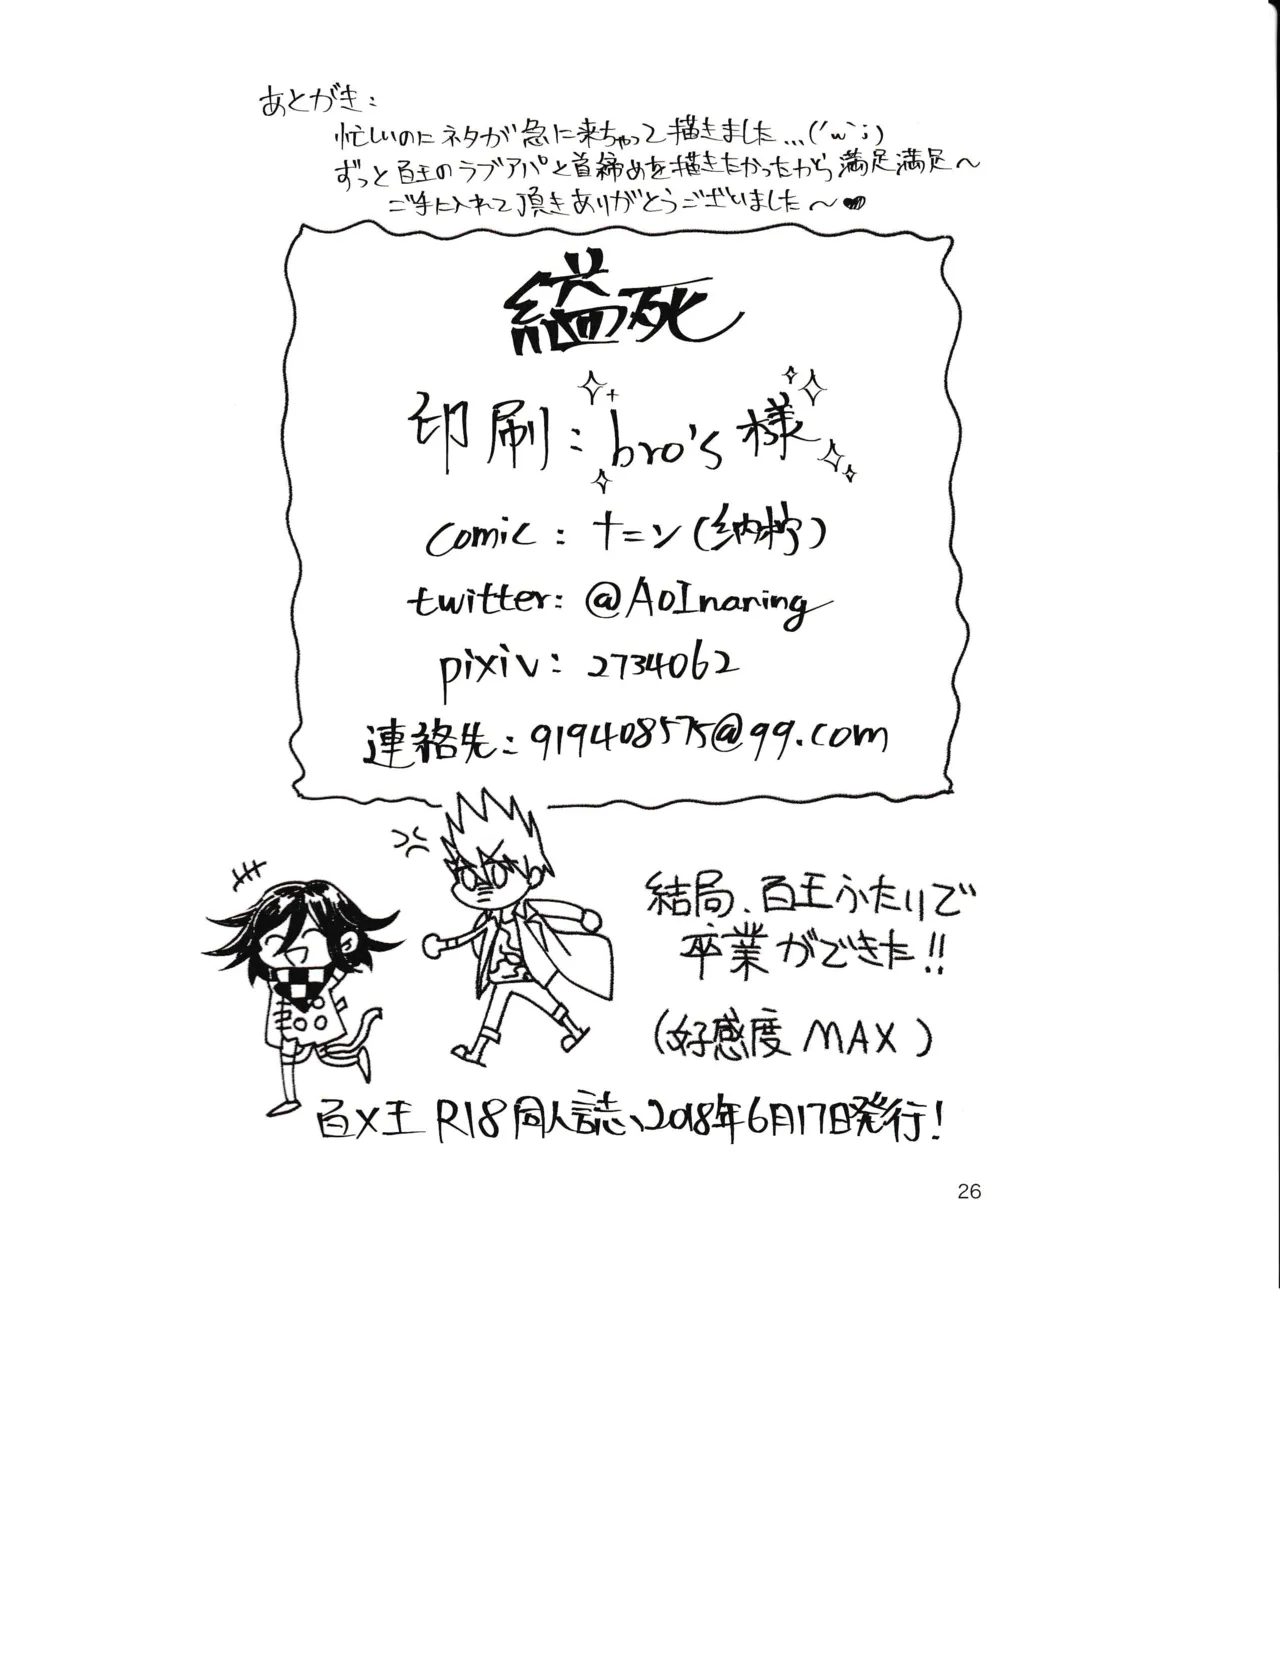 あとがき:
忙しいのにネタが急に来ちゃって描きました...('ω`;)
ずっと百王のラブアパと首締めを描きたかったから満足満足～
ご手に入れて頂きありがとうございました～♥
縊死
印刷:bro's様
comic:ナニン(纳柠)
twitter:@AoInaning
pixiv:2734062
連絡先:919408575@qq.com
結局、百王ふたりで
卒業ができた!!
(好感度MAX)
百×王 R18同人誌、2018年6月17日発行!
26